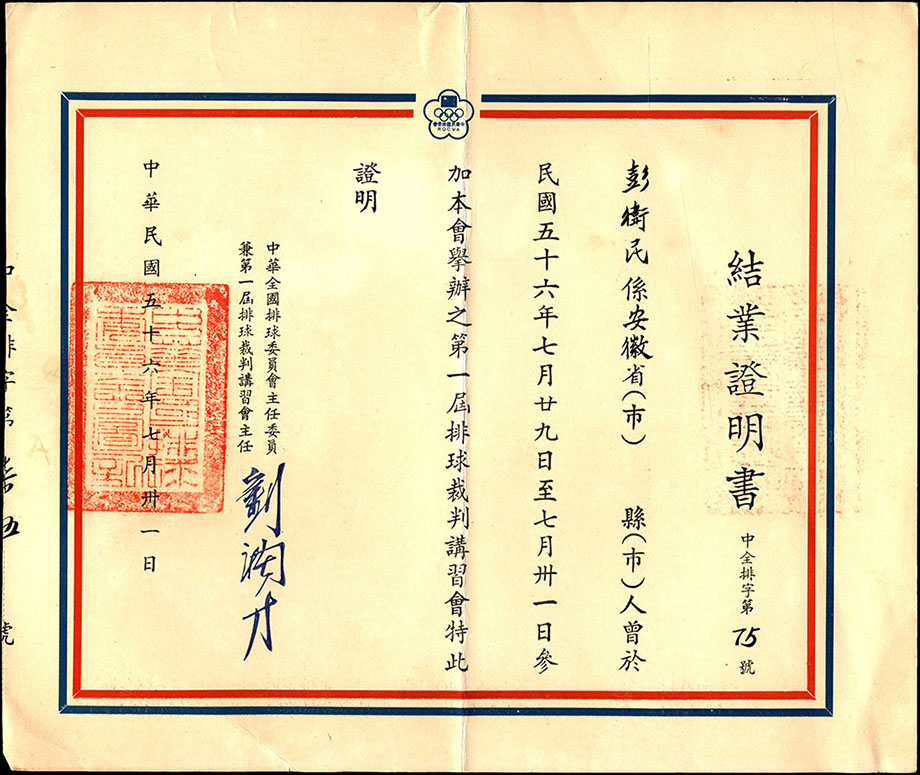 結業證明書
中全排字第75號
彭衛民係安徽省(市)　　縣(市)人曾於
民國五十六年七月廿九日至七月卅一日參
加本會舉辦之第一屆排球裁判講習會特此
證明
中華全國排球委員會主任委員
兼第一屆排球裁判講習會主任
中華民國五十六年七月卅一日
ROCVA